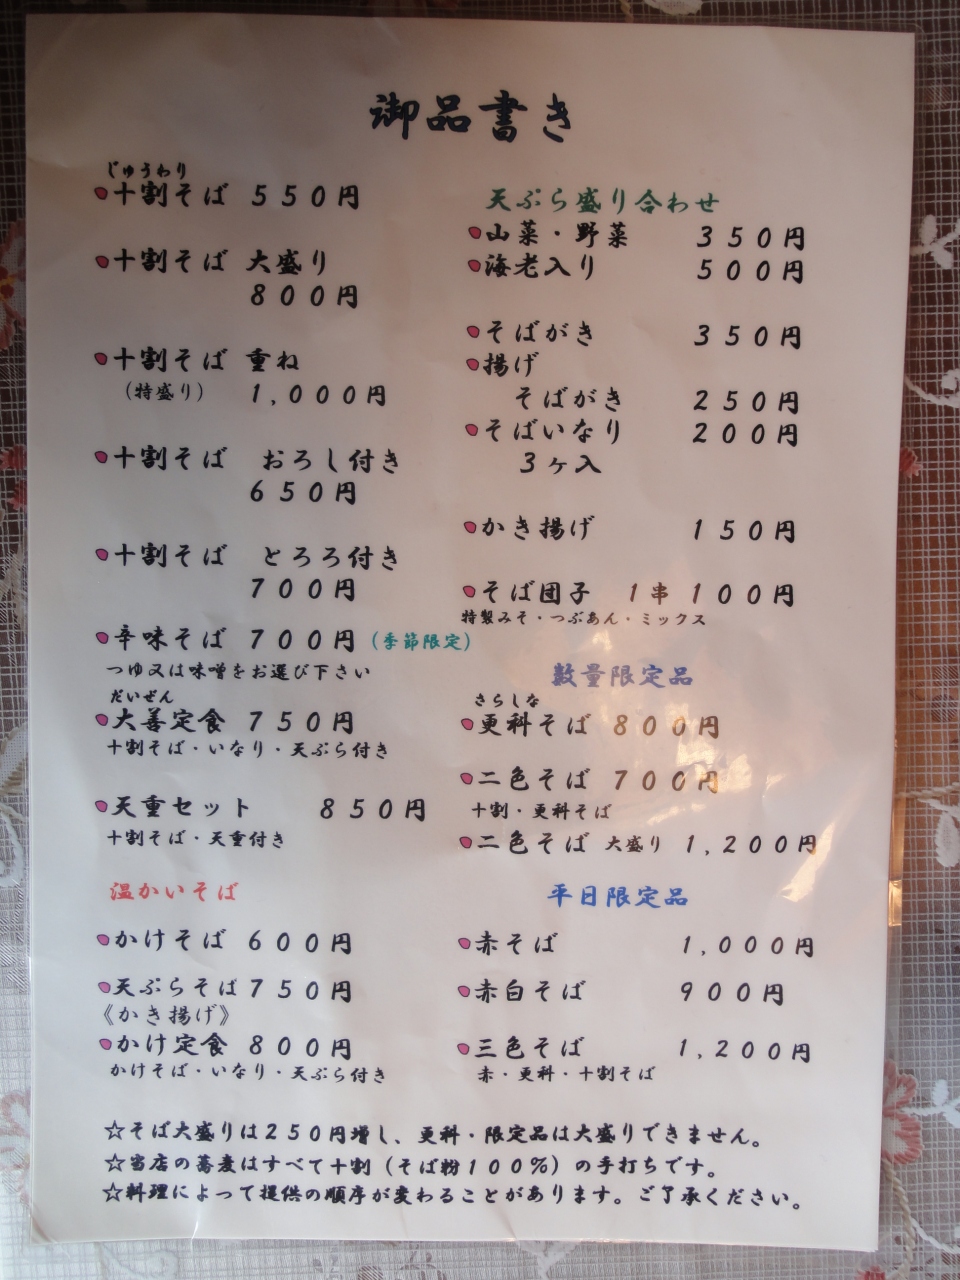 御品書き
じゅうわり
十割そば 550円
十割そば 大盛り
800円
十割そば 重ね
(特盛り) 1,000円
十割そば おろし付き
650円
十割そば とろろ付き
700円
辛味そば 700円 (季節限定)
つゆ又は味噌をお選び下さい
だいぜん
大善定食 750円
十割そば・いなり・天ぷら付き
天重セット 850円
十割そば・天重付き
温かいそば
かけそば 600円
天ぷらそば 750円
《かき揚げ》
かけ定食 800円
かけそば・いなり・天ぷら付き
天ぷら盛り合わせ
山菜・野菜 350円
海老入り 500円
そばがき 350円
揚げ
そばがき 250円
そばいなり 200円
3ヶ入
かき揚げ 150円
そば団子 1串 100円
特製みそ・つぶあん・ミックス
数量限定品
さらしな
更科そば 800円
二色そば 700円
十割・更科そば
二色そば 大盛り 1,200円
平日限定品
赤そば 1,000円
赤白そば 900円
三色そば 1,200円
赤・更科・十割そば
☆そば大盛りは250円増し、更科・限定品は大盛りできません。
☆当店の蕎麦はすべて十割(そば粉100%)の手打ちです。
☆料理によって提供の順序が変わることがあります。ご了承ください。